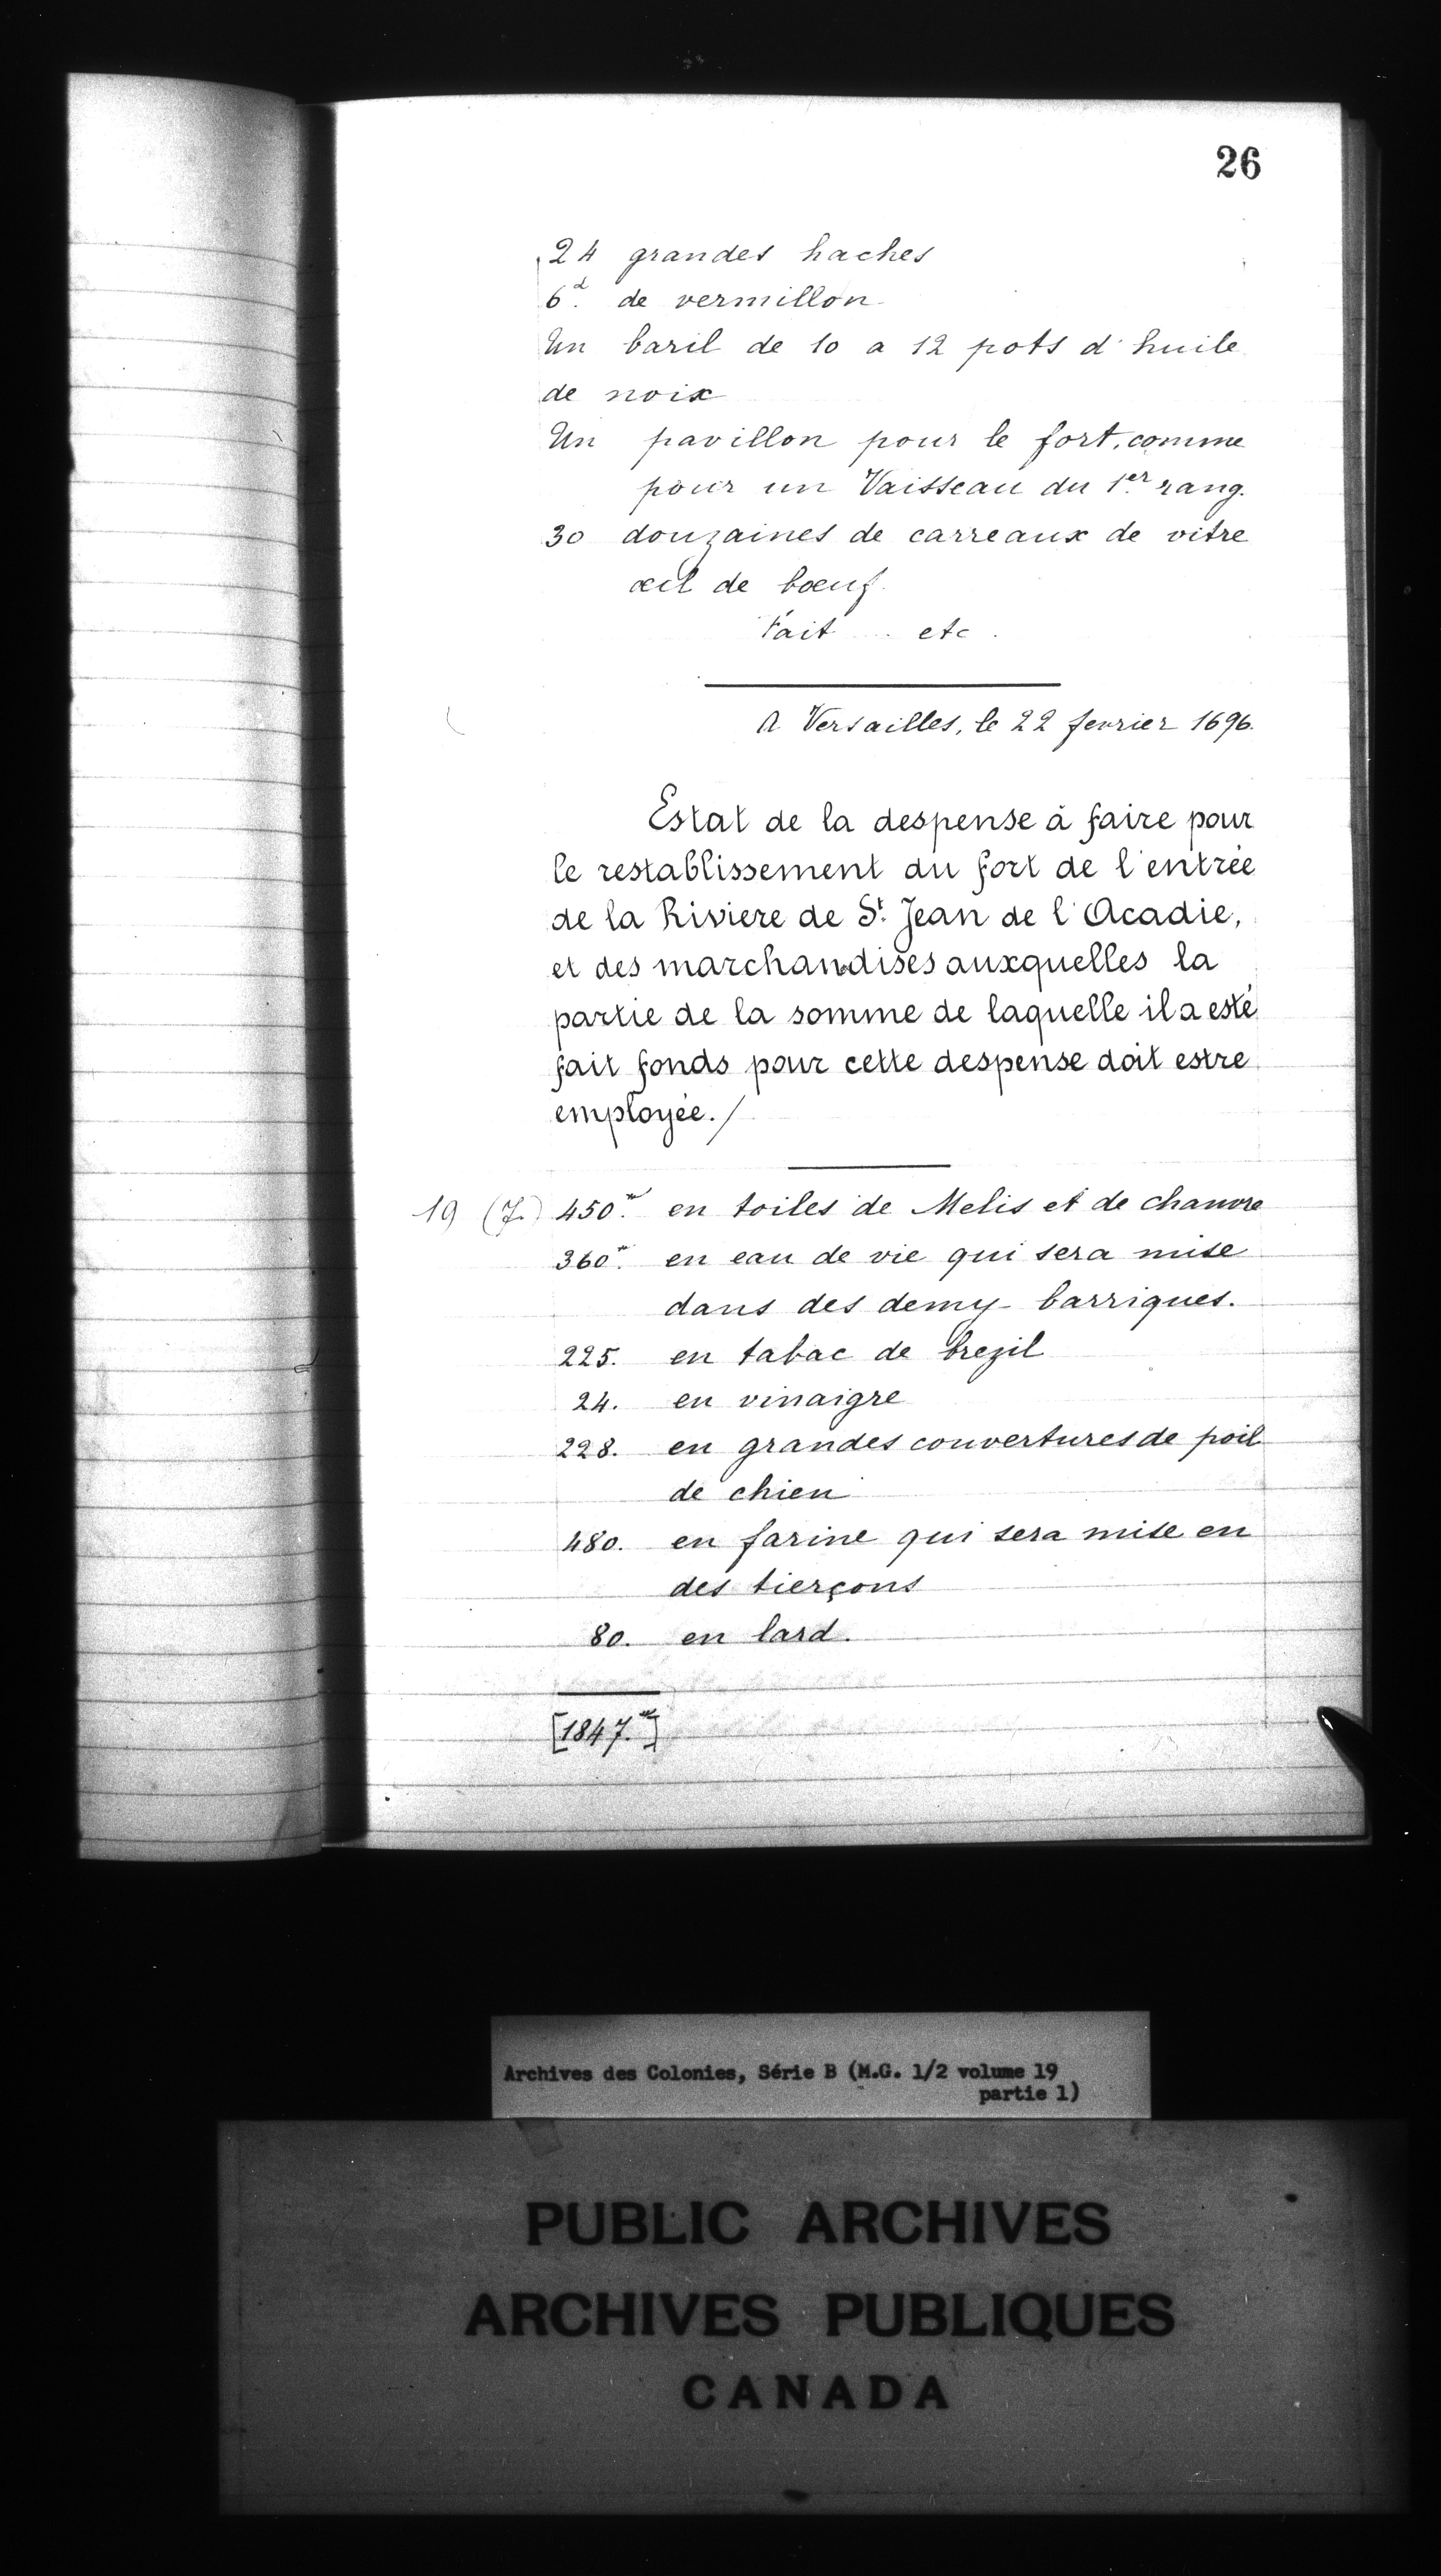 26
24 grandes haches
6.d de vermillon
Un baril de 10 a 12 pots d'huile
de noix
Un pavillon pour le fort, comme
pour un Vaisseau du 1.er rang.
30 douzaines de carreaux de vitre
œil de bœuf.
Fait ... etc.
A Versailles, le 22 fevrier 1696.
Estat de la despense à faire pour
le restablissement du fort de l'entrée
de la Riviere de St. Jean de l'Acadie,
et des marchandises auxquelles la
partie de la somme de laquelle il a esté
fait fonds pour cette despense doit estre
employée./
19 (7.) 450.# en toiles de Melis et de chanvre
360.# en eau de vie qui sera mise
dans des demy-barriques.
225. en tabac de brezil
24. en vinaigre
228. en grandes couvertures de poil
de chien
480. en farine qui sera mise en
des tierçons
80. en lard.
[1847.#]
Archives des Colonies, Série B (M.G. 1/2 volume 19
partie 1)
PUBLIC ARCHIVES
ARCHIVES PUBLIQUES
CANADA